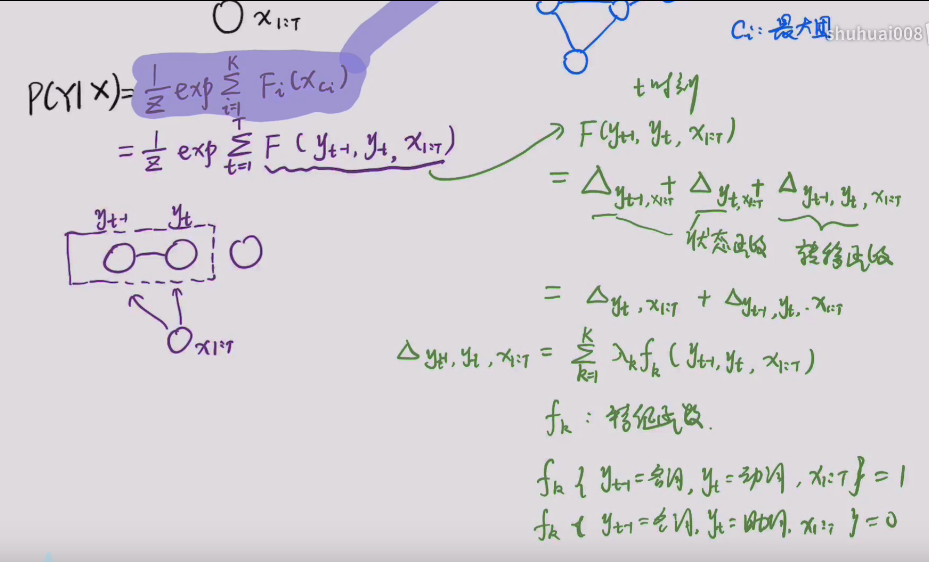 x_{1:T}
C_i: 最大团
shuhuai008
P(Y|X) = \frac{1}{Z} exp \sum_{i=1}^{K} F_i(x_{c_i})
= \frac{1}{Z} exp \sum_{t=1}^{T} F(y_{t-1}, y_t, x_{1:T})
y_{t-1} y_t
x_{1:T}
t时刻
F(y_{t-1}, y_t, x_{1:T})
= Δ_{y_{t-1}, x_{1:T}} + Δ_{y_t, x_{1:T}} + Δ_{y_{t-1}, y_t, x_{1:T}}
状态函数 转移函数
= Δ_{y_t, x_{1:T}} + Δ_{y_{t-1}, y_t, x_{1:T}}
Δ_{y_{t-1}, y_t, x_{1:T}} = \sum_{k=1}^{K} λ_k f_k(y_{t-1}, y_t, x_{1:T})
f_k: 特征函数.
f_k { y_{t-1}=名词, y_t=动词, x_{1:T} } = 1
f_k { y_{t-1}=名词, y_t=助词, x_{1:T} } = 0